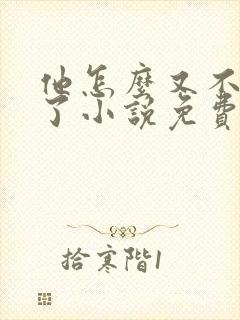 他怎麼又不
了小說免費
拾寒階1